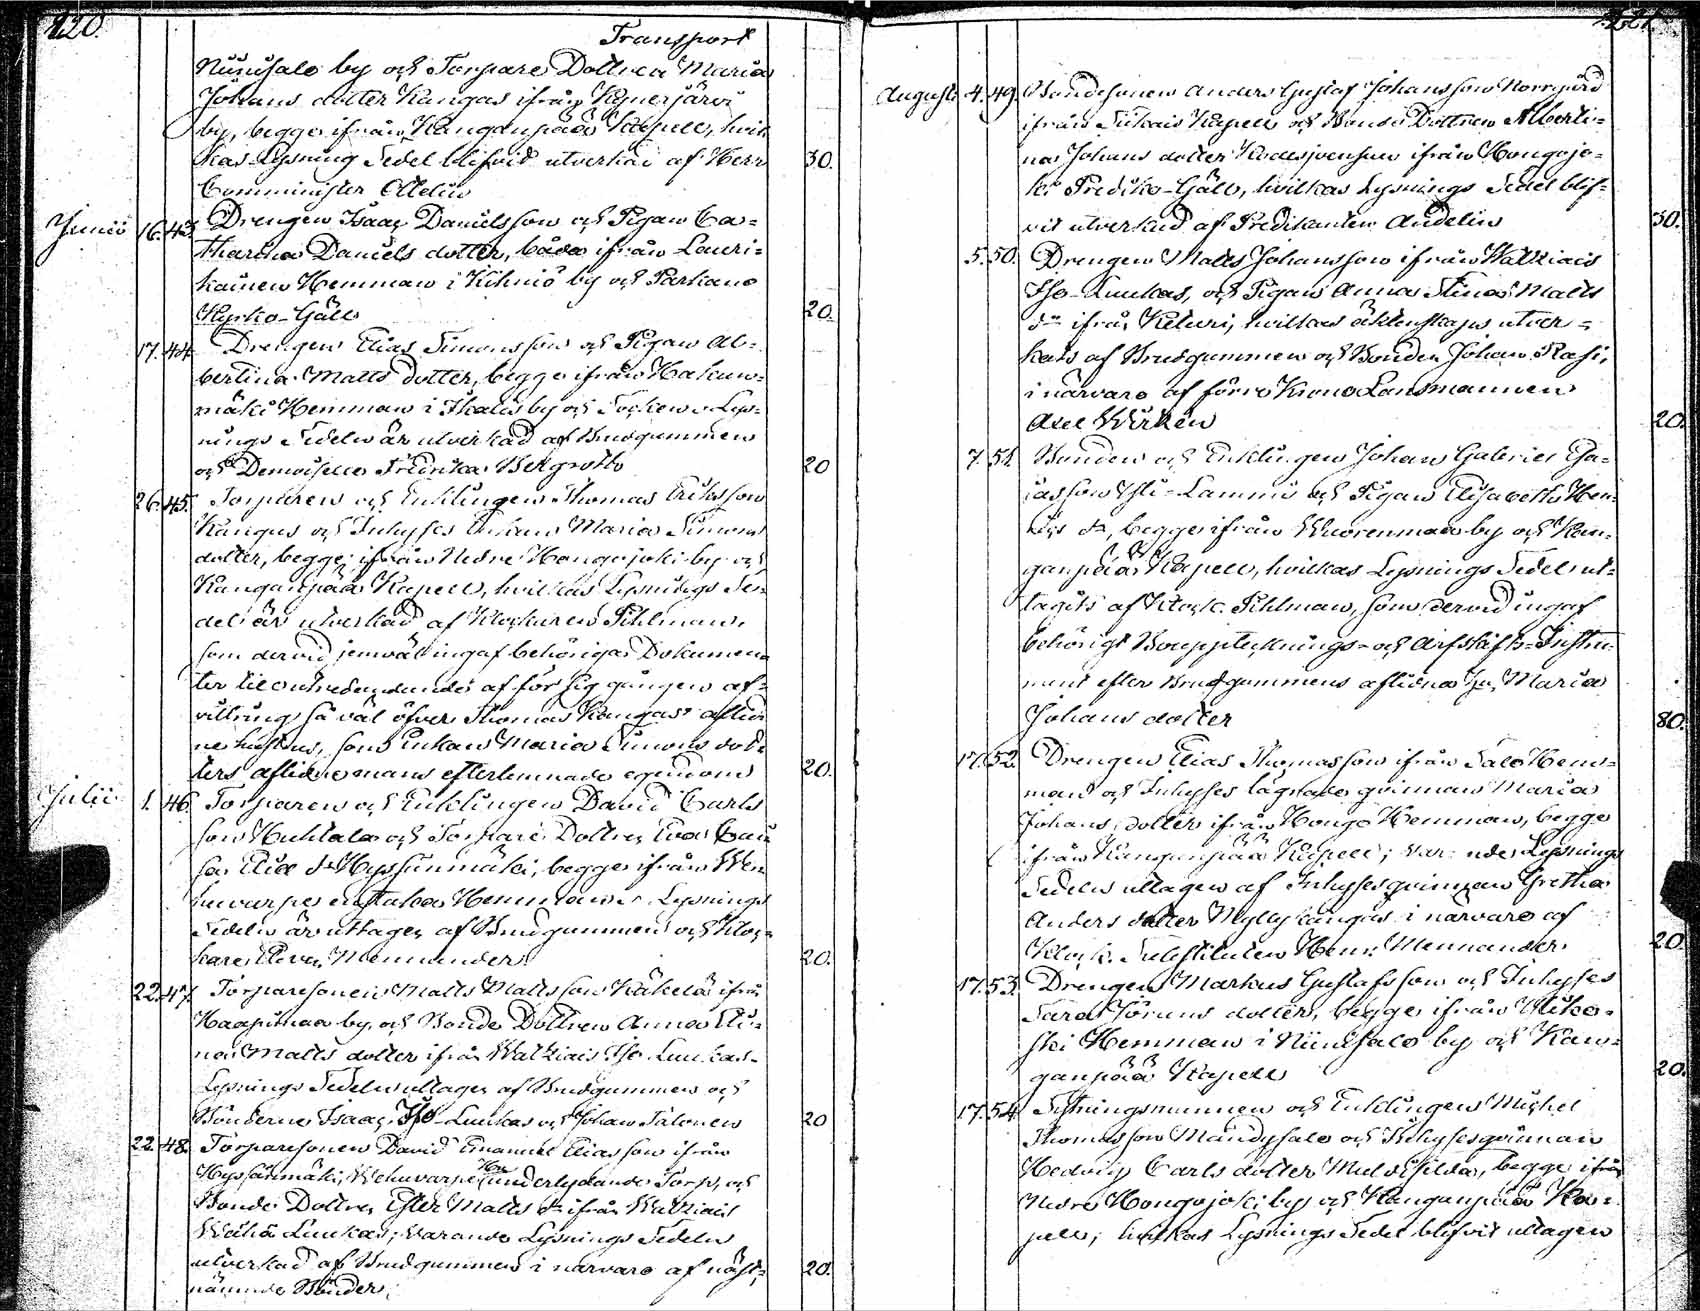 120.
Transport
Niinisalo by och Torpare Dottren Maria
Johans dotter Kangas ifrån Kynerjärvi
by, begge ifrån Kanganpää Kapell, hvil
kas Lysning Sedel blifvid utverkad af Herr 30.
Comminister
Junii 16. 43. Drengen Isaac Danielsson och Pigan Ca=
tharina Daniels dotter, båda ifrån Lauri=
kainen Hemman i Kihniö by och Parkano
Kyrko-Gäll 20.
17. 44. Drengen Elias Simonsson och Pigan Al=
bertina Matts dotter, begge ifrån Hakun=
mäki Hemman i Ikalis by och Socken. Lys=
nings Sedeln är utverkad af Brudgummen
och Demoiselle Fredrika Bergroth 20
26. 45. Torparen och Enklingen Thomas Eriksson
Kangas och Inhyses Enkan Maria Simons
dotter, begge ifrån Nedre Hongojoki by och
Kanganpää Kapell, hvilkas Lysnings Se=
del är utverkad af Klockaren Pihlman,
som dervid jemväl ingaf behöriga Dokumen=
ter til af för sig gången af=
vittring så väl öfver Thomas Kangas aflid
ne hustrus, som Enkan Maria Simons dot=
ters aflidne mans efterlemnade egendom 20.
Julii 1. 46. Torparen och Enklingen David Carls
son Huhtala och Torpare Dottren Eva
Elias dr Hyssänmäki, begge ifrån Wen
Hemman. Lysnings
Sedeln är uttagen af Brudgummen och Kloc=
kare Eleven Mennander. 20.
22. 47. Torparesonen Matts Mattsson Käkelä ifrån
Haapimaa by och Bonde Dottren Anna Sti=
na Matts dotter ifrån Watziais Iso Luukas.
Lysnings Sedeln uttagen af Brudgummen och
Bönderne Isaac Iso-Luukas och Johan Salonen 20
22. 48. Torparesonen David Emanuel Eliasson ifrån
Hyssänmäki, Wehuvarpe Hem underlydande Torp, och
Bonde Dottren Ester Matts dr ifrån Watziais
Wähä Luukas; varande Lysnings Sedeln
utverkad af Brudgummen i närvaro af näst=
nämnde Bönder. 20.
121.
Augusti 4. 49. Bondesonen Anders Gustaf Johansson Norrgård
ifrån Siikais Kapell och Bonde Dottren Alberti=
na Johans dotter ifrån Hongojo=
ki Prediko-Gäll, hvilkas Lysnings Sedel blif=
vit utverkad af Predikanten Andelin 30.
5. 50. Drengen Matts Johansson ifrån Watziais
Iso-Luukas, och Pigan Anna Stina Matts
dr ifrån Keturi, hvilkas äktenskap utver=
kats af Brudgummen och Bonden Johan Rasi,
i närvaro af förre Krono Länsmannen
Axel Wirzén 20.
7. 51. Bonden och Enklingen Johan Gabriel Esa=
iasson Yli-Lammi och Pigan Elisabeth Hen=
rics dr, begge ifrån Wuorenmaa by och Kan=
ganpää Kapell, hvilkas Lysnings Sedel ut=
tagits af Klock. Pihlman, som dervid ingaf
behörigt Bouppteknings- och Arfskifts-Instru=
ment efter Brudgummens aflidna hu, Maria
Johans dotter 80.
17. 52. Drengen Elias Thomasson ifrån Salo Hem=
man och Inhyses lägrade qvinnan Maria
Johans dotter ifrån Hongo Hemman, begge
ifrån Kanganpää Kapell; varande Lysnings
Sedeln uttagen af Inhyses qvinnan Gretha
Anders dotter Myllykangas i närvaro af
Klock. Substituten Henr. Mennander. 20.
17. 53. Drengen Markus Gustafsson och Inhyses
Sara Görans dotter, begge ifrån
Hemman i Niinisalo by och Kan=
ganpää Kapell 20.
17. 54. Sytningsmannen och Enklingen Michel
Thomasson Mäntysalo och Inhysesqvinnan
Hedvig Carls dotter begge ifrån
Nedre Hongojoki by och Kanganpää Ka=
pell; hvilkas Lysnings Sedel blifvit uttagen